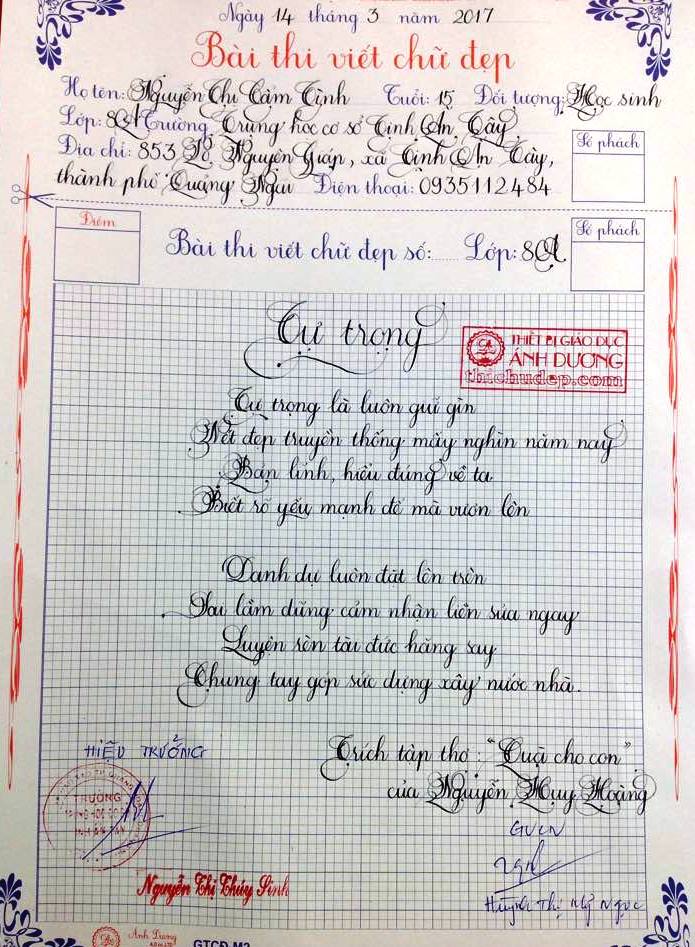 Ngày 14 tháng 3 năm 2017
Bài thi viết chữ đẹp
Họ tên: Nguyễn Thị Cẩm Tịnh Tuổi: 15 Đối tượng: Học sinh
Lớp: 8A Trường Trung học cơ sở Tịnh Ấn Tây
Địa chỉ: 853 Nguyên Giáp, xã Tịnh Ấn Tây,
thành phố Quảng Ngãi Điện thoại: 0935112484
Số phách
Điểm
Bài thi viết chữ đẹp số: ...... Lớp: 8A
Số phách
Tự trọng
THIẾT BỊ GIÁO DỤC
ÁNH DƯƠNG
thichudep.com
Tự trọng là luôn giữ gìn
Nét đẹp truyền thống mấy nghìn năm nay
Bản lĩnh, hiểu đúng về ta
Biết rõ yếu, mạnh để mà vươn lên
Danh dự luôn đặt lên trên
Sai lầm dũng cảm nhận liền sửa ngay
Luyện rèn tài đức hăng say
Chung tay góp sức dựng xây nước nhà.
Trích tập thơ: "Quà cho con"
của Nguyễn Huy Hoàng
HIỆU TRƯỞNG
TRƯỜNG
Nguyễn Thị Thúy Sinh
GVCN
Huỳnh Thị Mỹ Ngọc
Ánh Dương
GTCĐ-M2